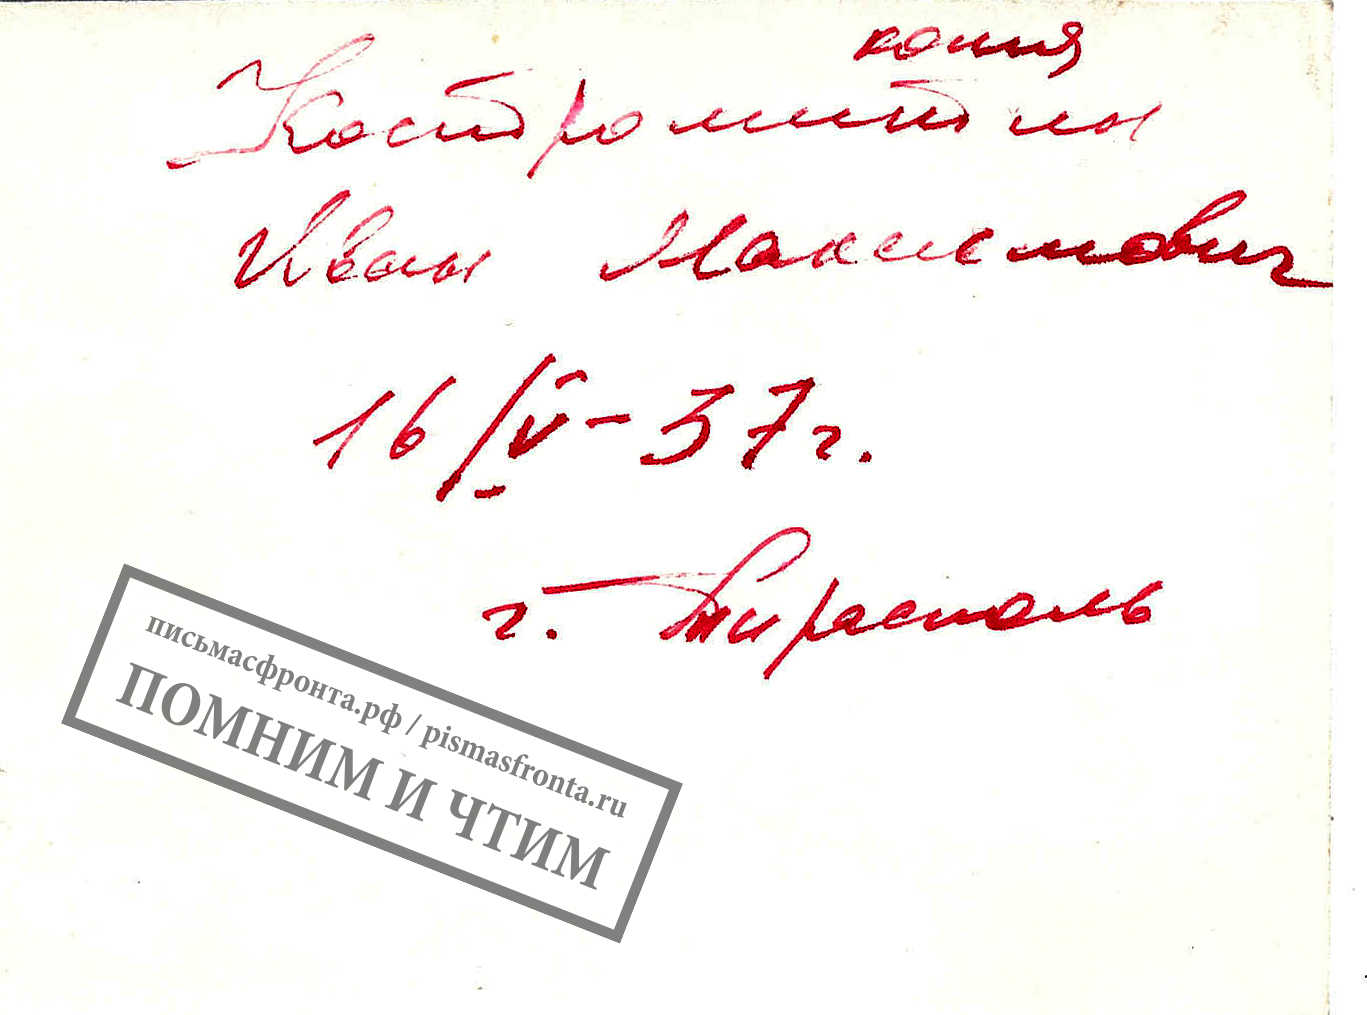 копия
Костромитин
Иван Максимович
16/V-37г.
г. Тирасполь
письмасфронта.рф / pismasfronta.ru
ПОМНИМ И ЧТИМ